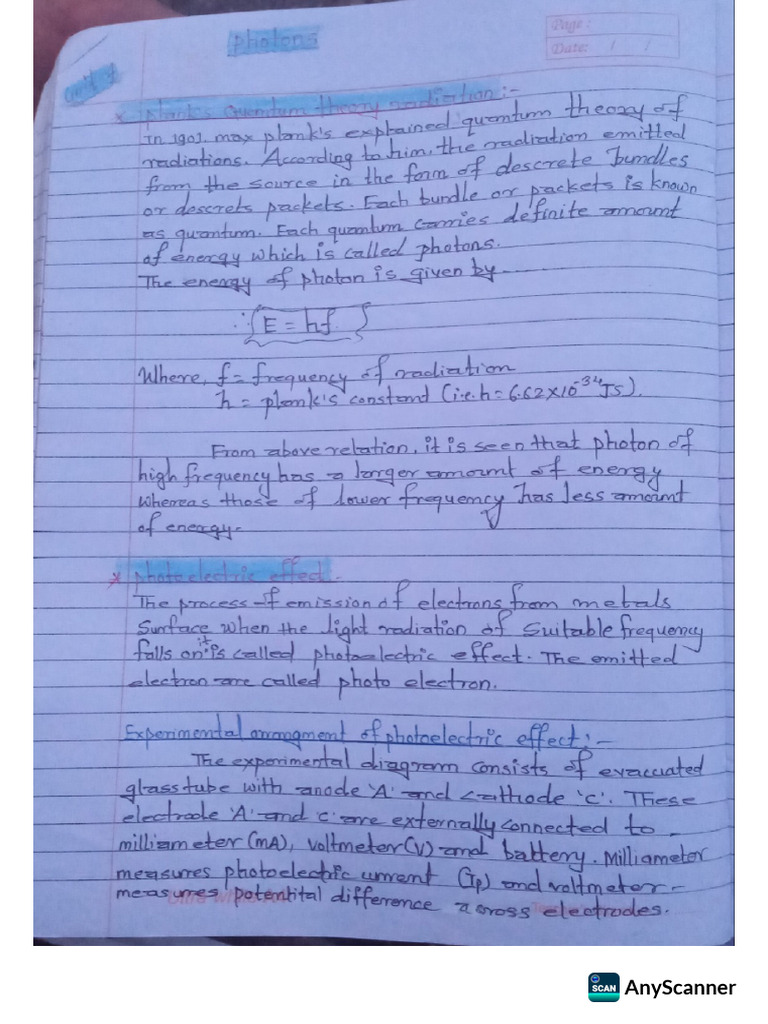 Photons
Page :
Date: / /
unit
* plank's Quantum theory radiation :-
In 1901. max plank's explained quantum theory of
radiations. According to him, the radiation emitted
from the source in the form of descrete bundles
or descrets packets. Each bundle or packets is known
as quantum. Each quantum carries definite amount
of energy which is called photons.
The energy of photon is given by
∴ E = hf
Where, f = frequency of radiation
h = plank's constand (i.e. h = 6.62×10⁻³⁴JS).
From above relation, it is seen that photon of
high frequency has a larger amount of energy
whereas those of lower frequency has less amount
of energy.
* photoelectric effect.
The process of emission of electrons from metals
surface when the light radiation of suitable frequency
falls on it is called photoelectric effect. The emitted
electron are called photo electron.
Experimental arrangment of photoelectric effect :-
The experimental diagram consists of evacuated
glass tube with anode 'A' and cathode 'C'. These
electrode 'A' and 'c' are externally connected to
milliameter (mA), voltmeter (V) and battery. Milliameter
measures photoelectric current (Ip) and voltmeter
measures potentital difference across electrodes.
SCAN AnyScanner